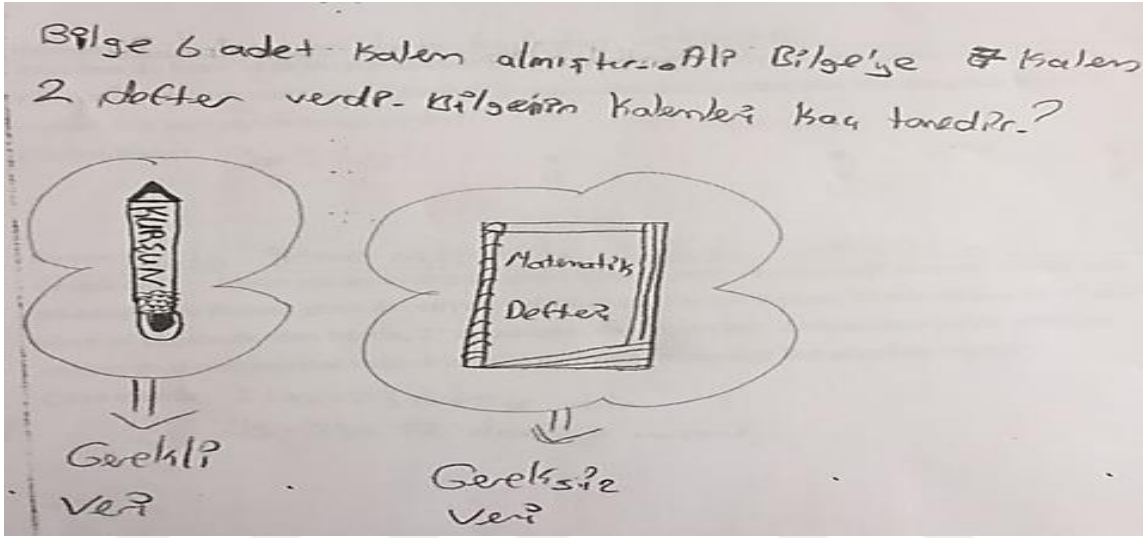 Bilge 6 adet kalem almıştır. Ali Bilge'ye 7 kalem
2 defter verdi. Bilgenin kalemleri kaç tanedir.?
KURŞUN
Matematik
Defteri
Gerekli
Veri
Gereksiz
Veri